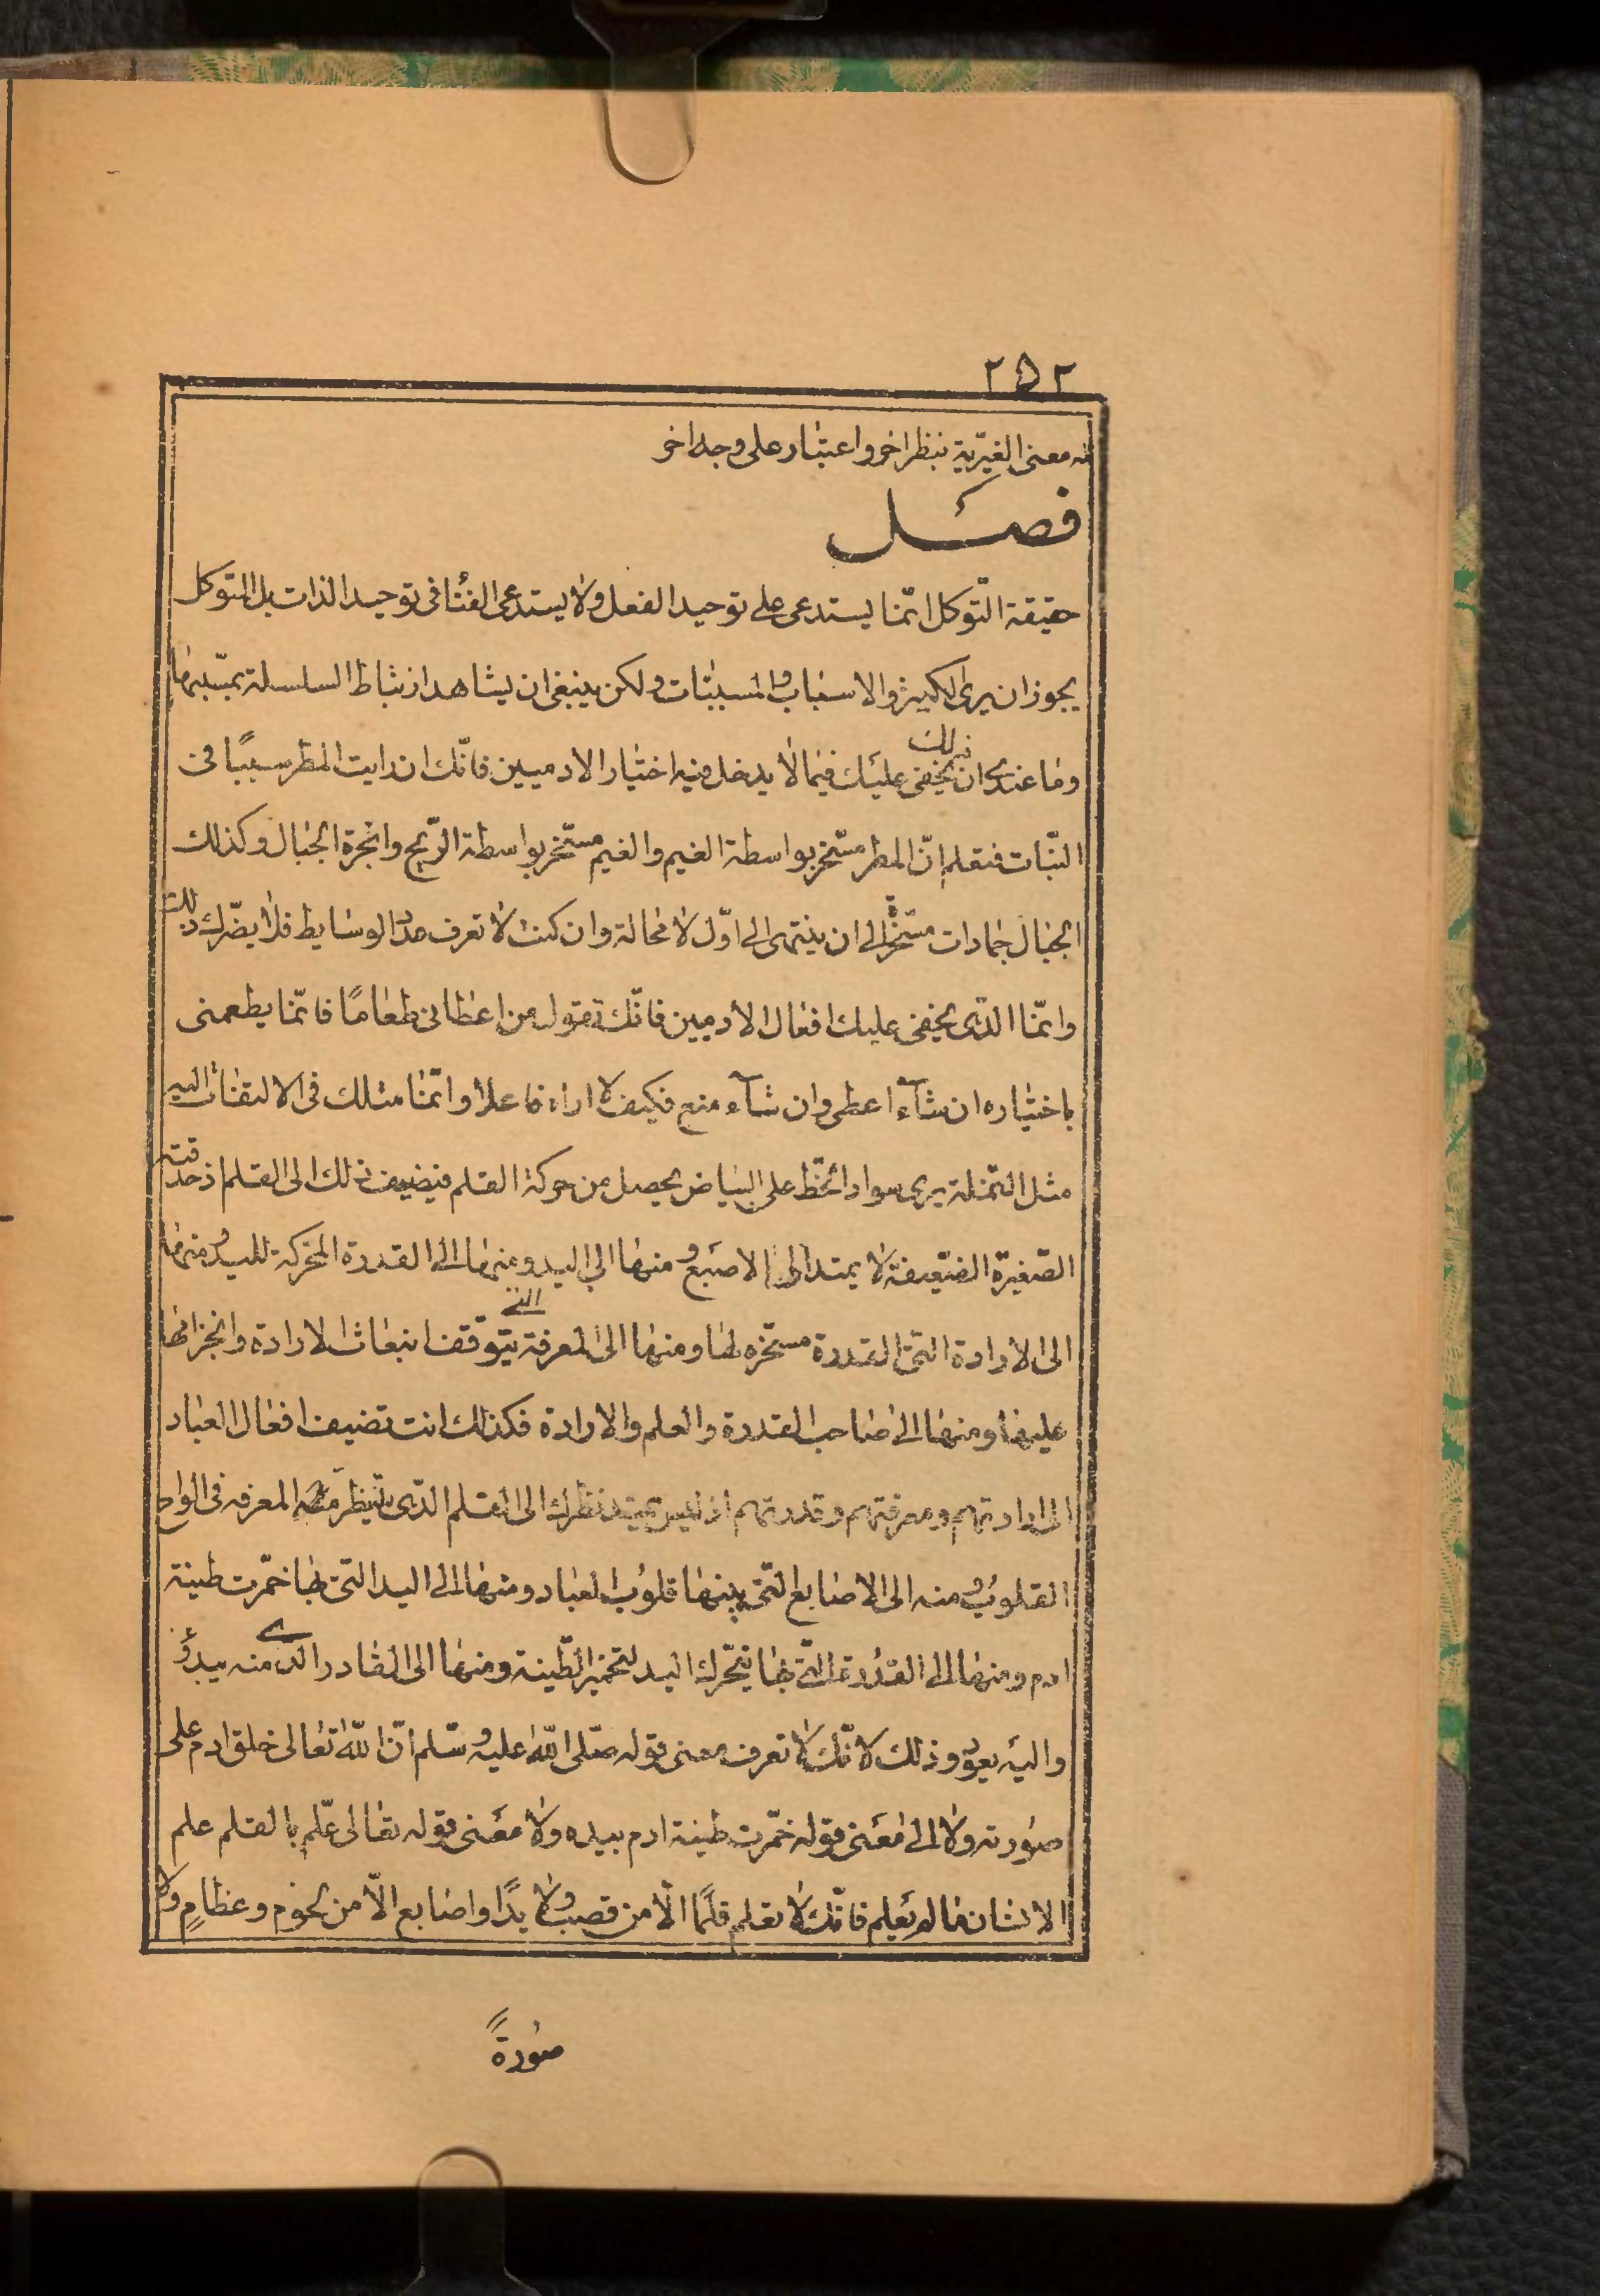 ٢٥٢
نه معنى الغيريّة بنظر اخر واعتبار على وجه اخر
فصل
حقيقة التّوكل انّما يستدعى على توحيد الفعل ولا يستدعى الفنا فى توحيد الذات بل المتوكل
يجوز ان يرى الكثير والاسباب والمسببات ولكن ينبغى ان يشاهد ارتباط السلسلة بمسببها
وما عندى ان ذلك يخفى عليك فيما لا يدخل فيه اختيار الادميين فانّك ان رايت المطر سببًا فى
النبات فتعلم انّ المطر مسّخر بواسطة الغيم والغيم مسّخر بواسطة الرّيح وابخرة الجبال وكذلك
الجبال جمادات مسّخرة الى ان ينتهى الى اوّل لا محالة وان كنت لا تعرف عدد الوسايط فلا يضّرك ذلك
وانّما الذّى يخفى عليك افعال الادميين فانّك تقول من اعطانى طعامًا فانّما يطعمنى
باختياره ان شآء اعطى وان شآء منع فكيف لا اراه فاعلا وانّما مثلك فى الالتفات اليه
مثل النّملة يرى سواد الخّط على البياض يحصل من حركة القلم فيضيف ذلك الى القلم اذ حدقته
الصّغيرة الضّعيفة لا يمتد الى الاصبع ومنها الى اليد ومنها الى القدرة المحّركة لليد ومنها
الى الارادة التّى القدرة مسّخره لها ومنها الى المعرفة التى يتوّقف انبعاث الارادة وانجزامها
عليها ومنها الى صاحب القدرة والعلم والارادة فكذلك انت تضيف افعال العباد
الى ارادتهم ومعرفتهم وقدرتهم اذ ليس يمتد نظرك الى القلم الذّى المعرفه فى الواح
القلوب ومنه الى الاصابع التّى بينها قلوب العباد ومنها الى اليد التّى بها خمّرت طينة
ادم ومنها الى القدرة التّى بها يتحّرك اليد لتخمير الطّينة ومنها الى القادر الذى منه يبدؤ
واليه يعود وذلك لانّك لا تعرف معنى قوله صّلى اللّه عليه وسّلم انّ اللّه تعالى خلق ادم على
صورته ولا الى معنى قوله خمّرت طينة ادم بيده ولا معنى قوله تعالى عّلم بالقلم علم
الانسان ما لم يعلم فانّك لا تعلم قلمًا الّا من قصب ولا يدًا واصابع الّا من لحوم وعظامٍ ولا
صورةً